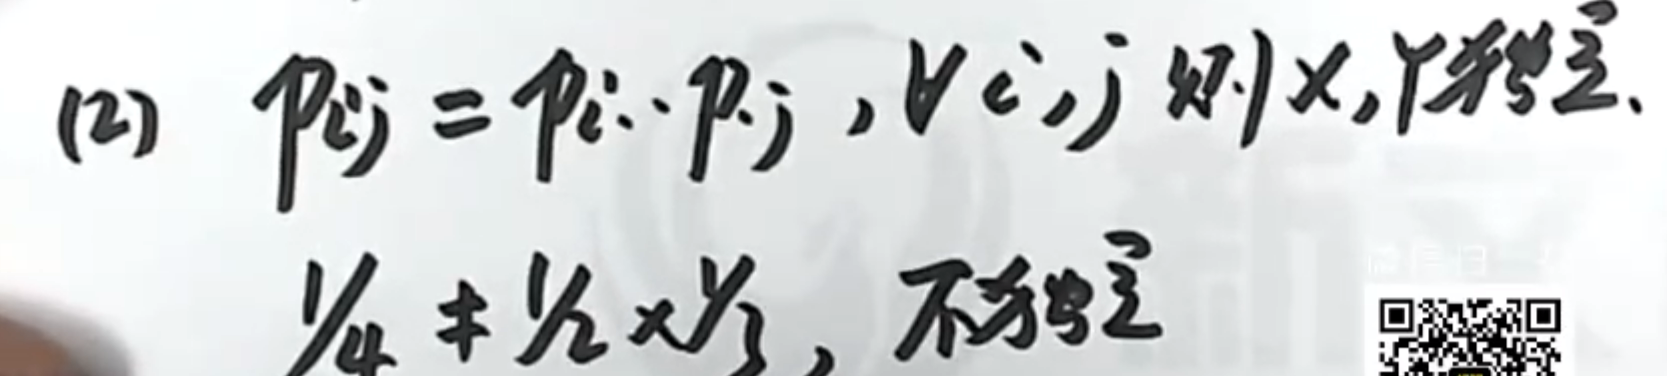 (2) pij = pi· · p·j , ∀ i, j 则 X, Y 独立.
1/4 ≠ 1/2 × 1/3 , 不独立